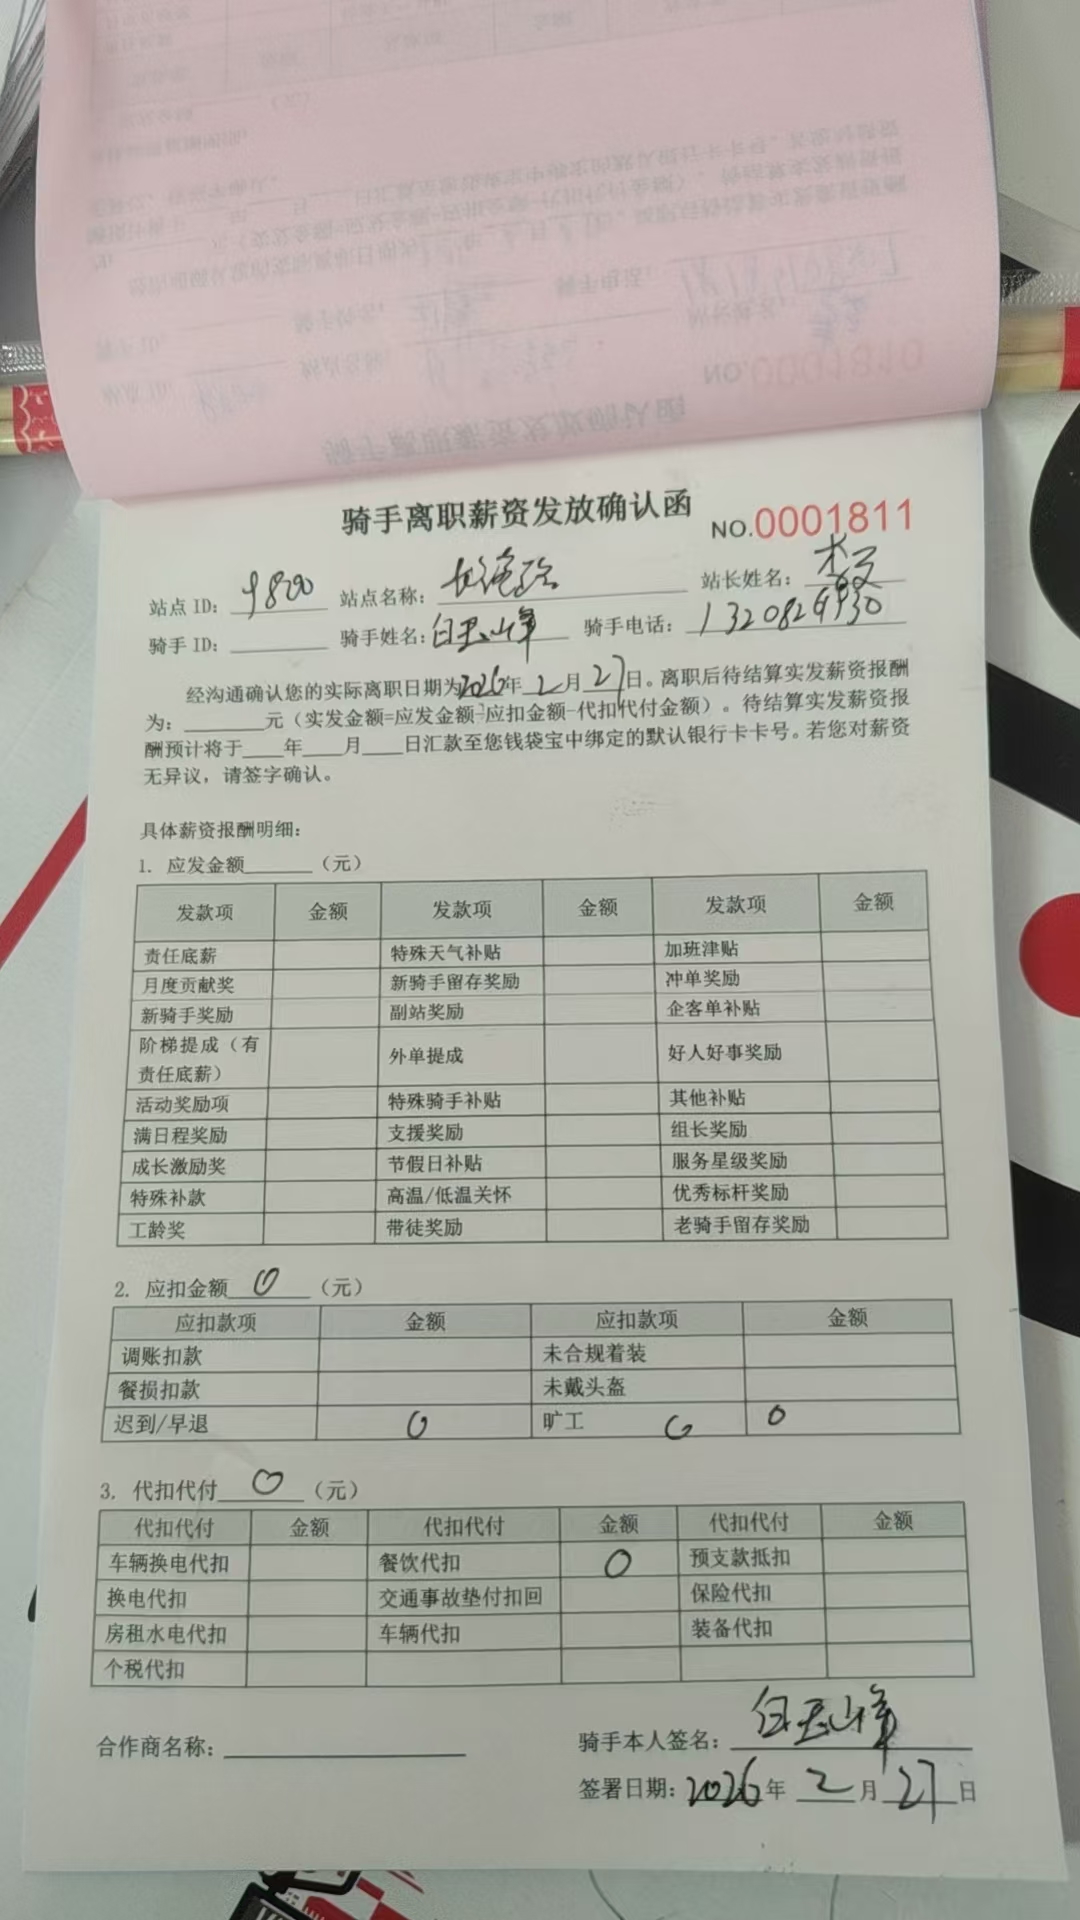 骑手离职薪资发放确认函
NO.0001811
站点 ID: 站点名称: 站长姓名:
骑手 ID: 骑手姓名:白玉峰 骑手电话:
经沟通确认您的实际离职日期为2026年2月27日。离职后待结算实发薪资报酬
为:____元（实发金额=应发金额-应扣金额-代扣代付金额）。待结算实发薪资报
酬预计将于____年____月____日汇款至您钱袋宝中绑定的默认银行卡卡号。若您对薪资
无异议，请签字确认。
具体薪资报酬明细:
1. 应发金额____（元）
发款项 金额 发款项 金额 发款项 金额
责任底薪 特殊天气补贴 加班津贴
月度贡献奖 新骑手留存奖励 冲单奖励
新骑手奖励 副站奖励 企客单补贴
阶梯提成（有责任底薪） 外单提成 好人好事奖励
活动奖励项 特殊骑手补贴 其他补贴
满日程奖励 支援奖励 组长奖励
成长激励奖 节假日补贴 服务星级奖励
特殊补款 高温/低温关怀 优秀标杆奖励
工龄奖 带徒奖励 老骑手留存奖励
2. 应扣金额 0 （元）
应扣款项 金额 应扣款项 金额
调账扣款 未合规着装
餐损扣款 未戴头盔
迟到/早退 0 旷工 0 0
3. 代扣代付 0 （元）
代扣代付 金额 代扣代付 金额 代扣代付 金额
车辆换电代扣 餐饮代扣 0 预支款抵扣
换电代扣 交通事故垫付扣回 保险代扣
房租水电代扣 车辆代扣 装备代扣
个税代扣
合作商名称: 骑手本人签名:白玉峰
签署日期:2026年 2月27日